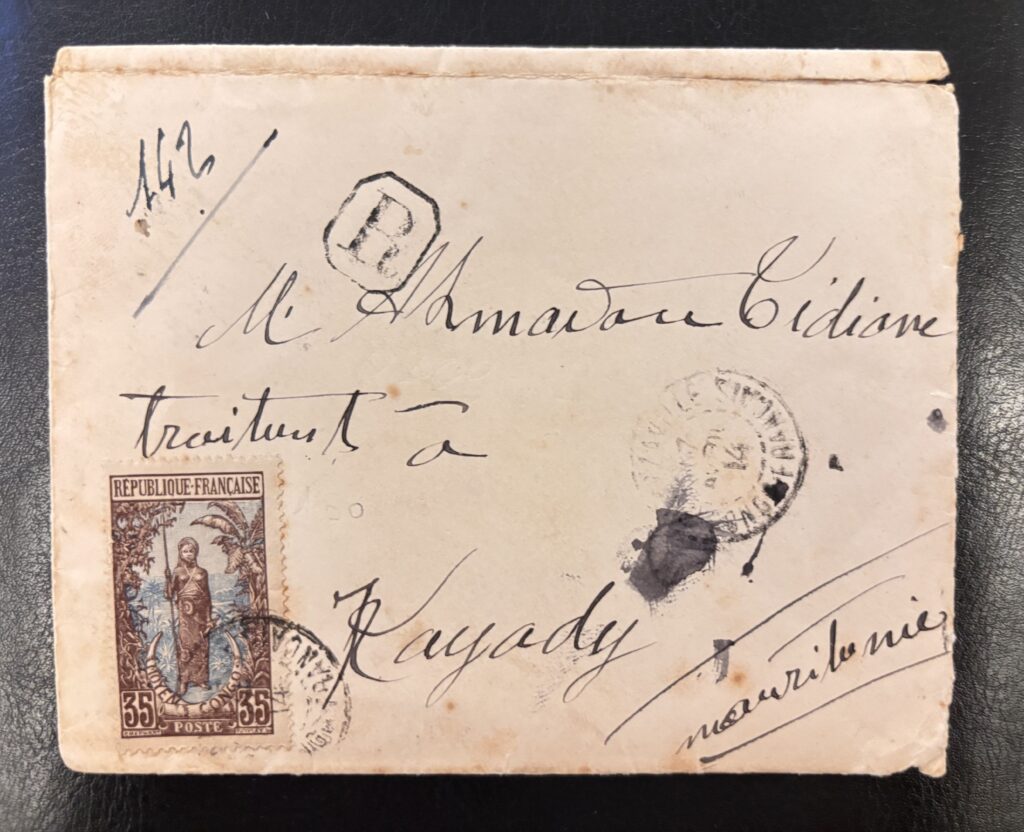 142
R
M. Ahmadou Tidiane
traitant à
14
RÉPUBLIQUE-FRANÇAISE
Kayady
mauritanie
MOYEN CONGO
35 35
POSTE